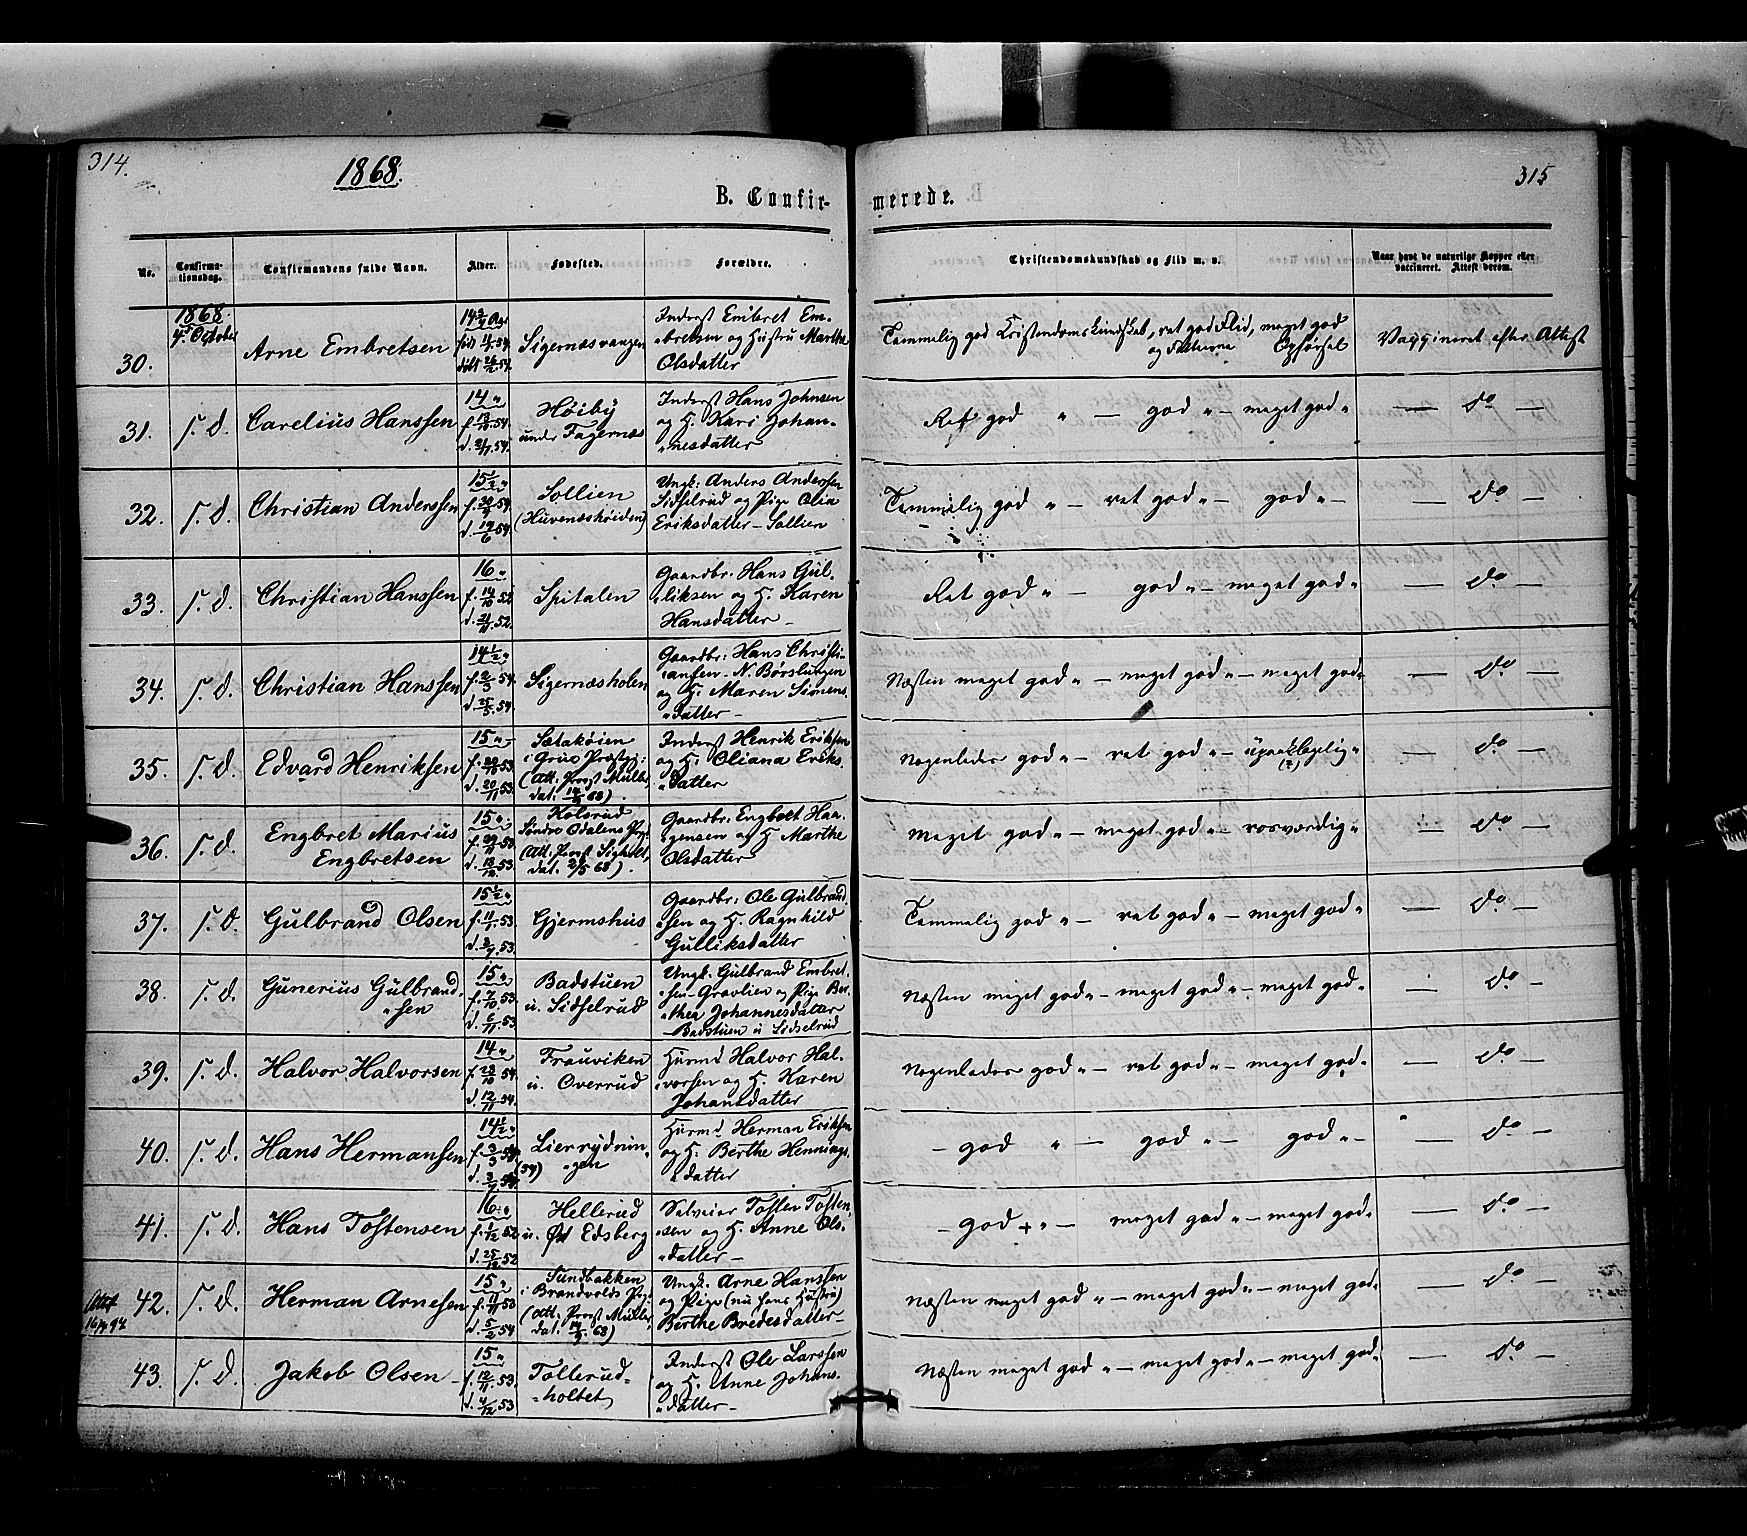 314.
1868.
B. Confir-
merede.
315
No.
Confirma-
tionsdag.
Confirmandens fulde Navn.
Alder.
Fødested.
Forældre.
Christendomskundskab og Flid m. v.
Naar havt de naturlige Kopper eller
vaccineret. Attest derom.
1868.
4de October
30.
Arne Embretsen
Sigernæsvangen
Inderst Embret Em-
bretsen og Hustru Marthe
Olsdatter
Temmelig god Kristendomskundskab, ret god Flid, meget god
Opførsel
Vaxxineret efter Attest
31. s. d. Carelius Hanssen
14 "
Høiby
under Fagernæs
Inderst Hans Johnsen
og H. Kari Johan-
nesdatter
Ret god " — god " — meget god "
— do —
32. s. d. Christian Anderssen
15 1/2 "
Sollien
(Huvenæshøiden)
Ungk: Anders Anderssen
Sidselrud og Pige Olia
Eriksdatter - Sollien
Temmelig god " — ret god " — god " —
— do —
33. s. d. Christian Hanssen
16 "
Spitalen
Gaardbr: Hans Gul-
liksen og H. Karen
Hansdatter -
Ret god " — god " — meget god "
— do —
34. s. d. Christian Hanssen
14 1/2 "
Sigernæsholen
Gaardbr: Hans Christi-
ansen - N. Børslungen
og H. Maren Simens-
datter -
Næsten meget god " — meget god " — meget god "
— do —
35. s. d. Edvard Henriksen
15 "
Sætakøien
i Grue Præstgj:
(Att: Provst Müller,
Inderst Henrik Eriksen
og H. Oliana Eriks-
datter
Nogenledes god " — ret god " — upaaklagelig "
(?)
— do —
36. s. d. Engbret Marius
Engbretsen
15 "
Kolsrud
Søndre Odalens Pg:
dat: 2/5 68).
Gaardbr: Engbret Haa-
gensen og H. Marthe
Olsdatter
Meget god " — meget god " — rosværdig "
— do —
37. s. d. Gulbrand Olsen
15 1/2 "
Gjermshus
Gaardbr: Ole Gulbrand-
sen og H. Ragnhild
Gulliksdatter
Temmelig god " — ret god " — meget god "
— do —
38. s. d. Gunerius Gulbrand-
sen
15 "
Badstuen
u. Sidselrud
Ungk: Gulbrand Embret-
sen - Gravlien og Pige Ber-
the Johannesdatter
- Badstuen u Sidselrud
Næsten meget god " — meget god " — meget god "
— do —
39. s. d. Halvor Halvorsen
14 "
Frauviken
u. Overrud
Husmd Halvor Hal-
vorsen og H. Karen
Johansdatter
Nogenledes god " — ret god " — meget god "
— do —
40. s. d. Hans Hermansen
14 1/2 "
Lierrydnin-
gen
Husmd Herman Eriksen
og H. Berthe Hennings-
datter
— god " — god " — god " —
— do —
41. s. d. Hans Tostensen
16 "
Hellerud
u. Øst Edsberg
Selveier Tosten Tosten-
sen og H. Anne Ols-
datter -
— god + " — meget god " — meget god "
— do —
Attest
42. s. d. Herman Arnesen
15 "
Sundbakken
i Brandvolds Pg:
(Att: Provst Müller,
Ungk: Arne Hanssen
og Pige (nu hans Hustru)
Berthe Bredesdatter -
Næsten meget god " — meget god " — meget god "
— do —
43. s. d. Jakob Olsen -
15 "
Tollerud-
holtet
Inderst Ole Larssen
og H. Anne Johans-
datter -
Næsten meget god " — meget god " — meget god "
— do —